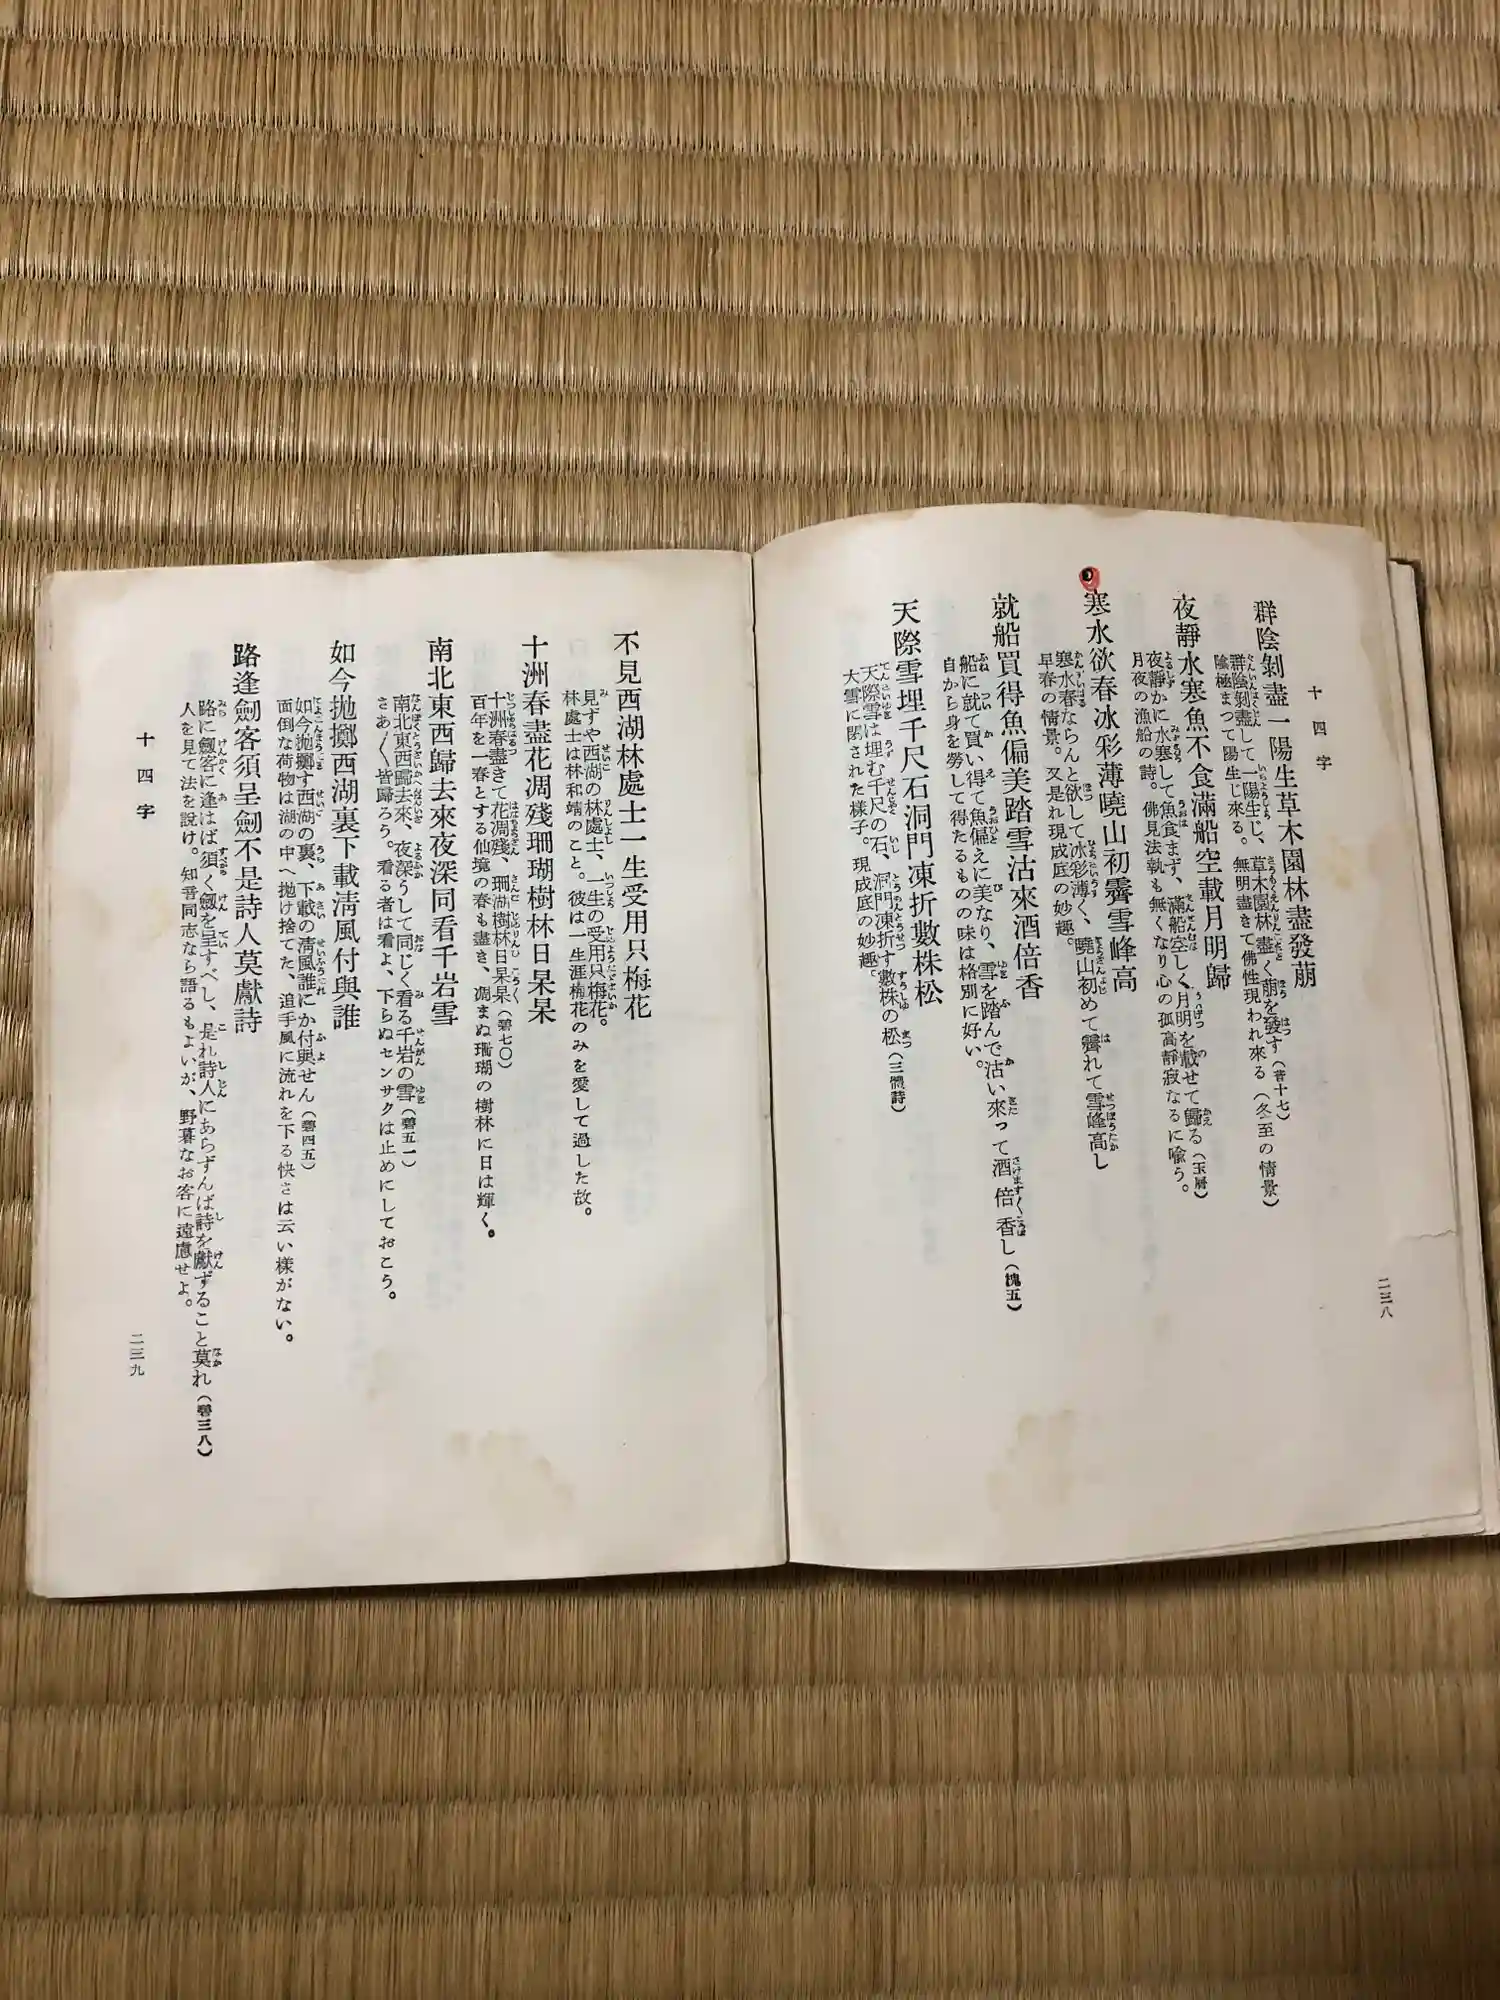 十四字
二三八
群陰剝盡一陽生草木園林盡發萠
群陰剝盡して一陽生じ、草木園林盡く萠を發す（普十七）
陰極まつて陽生じ來る。無明盡きて佛性現われ來る（冬至の情景）
夜靜水寒魚不食滿船空載月明歸
夜靜かに水寒して魚食まず、滿船空しく月明を載せて歸る（玉屑）
月夜の漁船の詩。佛見法執も無くなり心の孤高靜寂なるに喩う。
寒水欲春冰彩薄曉山初霽雪峰高
寒水春ならんと欲して冰彩薄く、曉山初めて霽れて雪峰高し
早春の情景。又是れ現成底の妙趣。
就船買得魚偏美踏雪沽來酒倍香
船に就て買い得て魚偏えに美なり、雪を踏んで沽い來つて酒倍香し（槐五）
自から身を勞して得たるものの味は格別に好い。
天際雪埋千尺石洞門凍折數株松
天際雪は埋む千尺の石、洞門凍折す數株の松（三體詩）
大雪に閉された樣子。現成底の妙趣。
不見西湖林處士一生受用只梅花
見ずや西湖の林處士、一生の受用只梅花。
林處士は林和靖のこと。彼は一生涯梅花のみを愛して過した故。
十洲春盡花凋殘珊瑚樹林日杲杲
十洲春盡きて花凋殘、珊瑚樹林日杲杲（碧七〇）
百年を一春とする仙境の春も盡き、凋まぬ珊瑚の樹林に日は輝く。
南北東西歸去來夜深同看千岩雪
南北東西歸去來、夜深うして同じく看る千岩の雪（碧五一）
さあ〳〵皆歸ろう。看る者は看よ、下らぬセンサクは止めにしておこう。
如今抛擲西湖裏下載淸風付與誰
如今抛擲す西湖の裏、下載の淸風誰にか付與せん（碧四五）
面倒な荷物は湖の中へ抛げ捨てた、追手風に流れを下る快さは云い樣がない。
路逢劍客須呈劍不是詩人莫獻詩
路に劍客に逢はば須く劍を呈すべし、是れ詩人にあらずんば詩を獻ずること莫れ（碧三八）
人を見て法を說け。知音同志なら語るもよいが、野暮なお客に遠慮せよ。
十四字
二三九